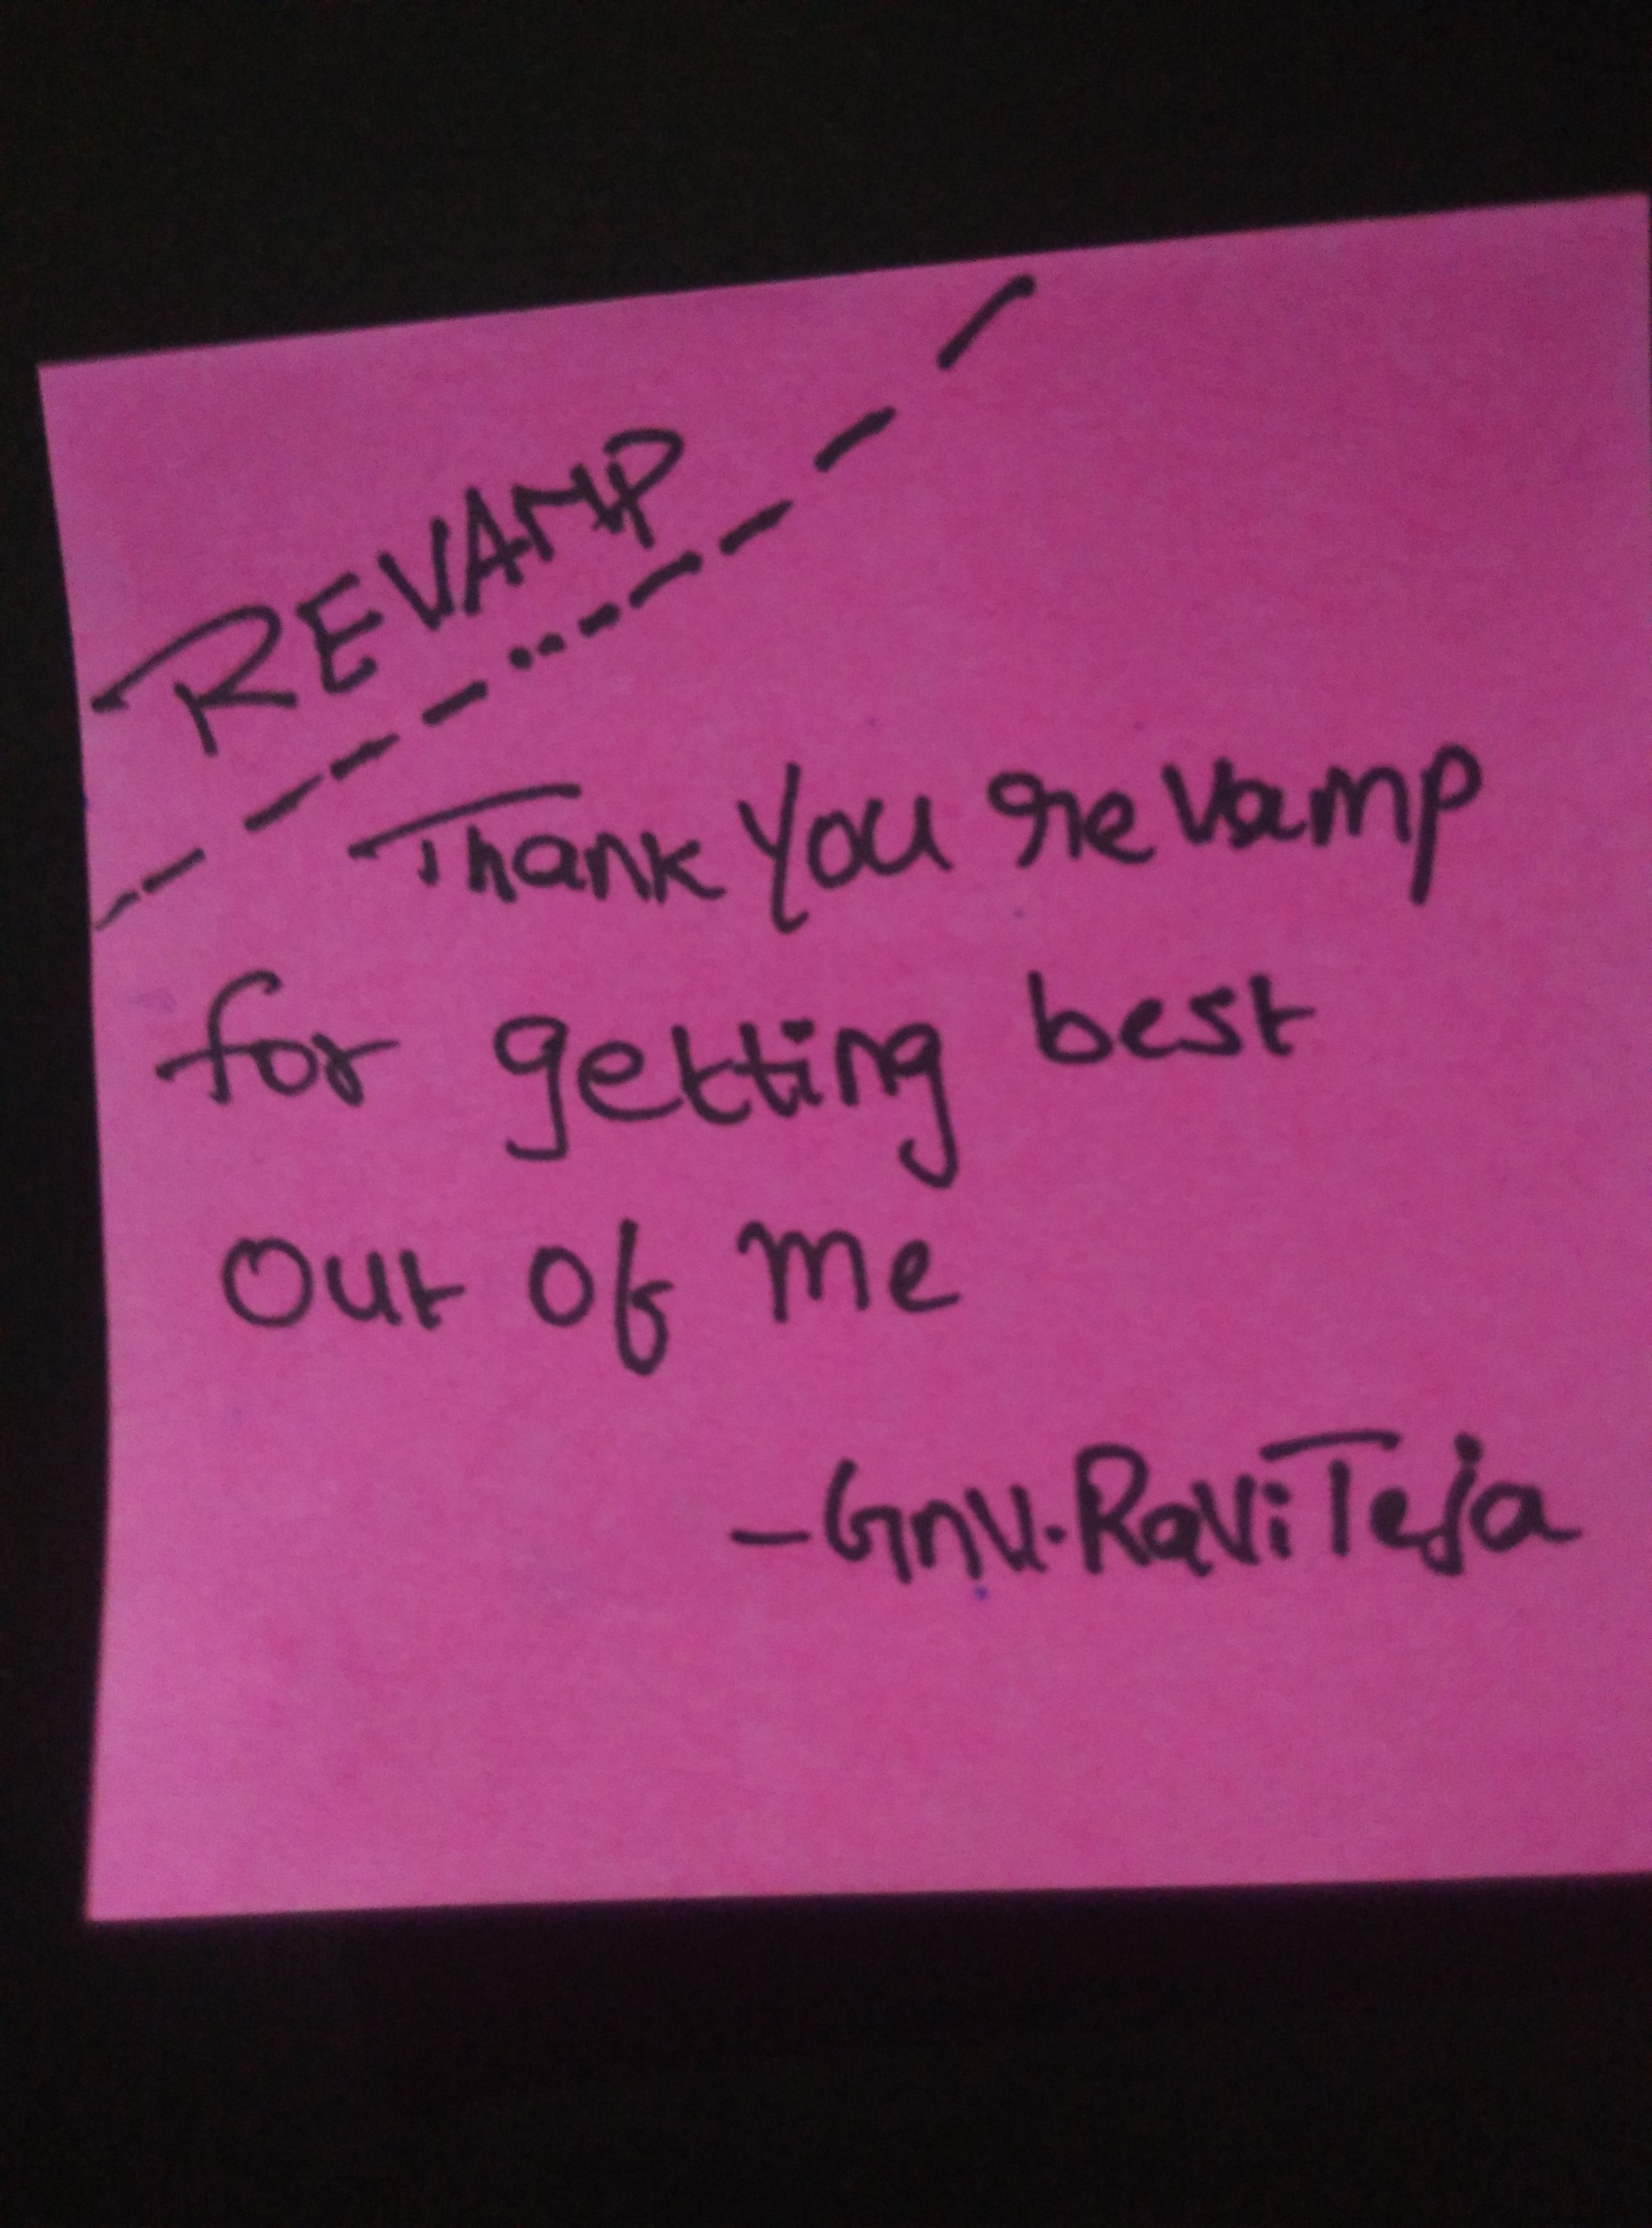 REVAMP
Thank You revamp
for getting best
out of me
- GNV. RaviTeja